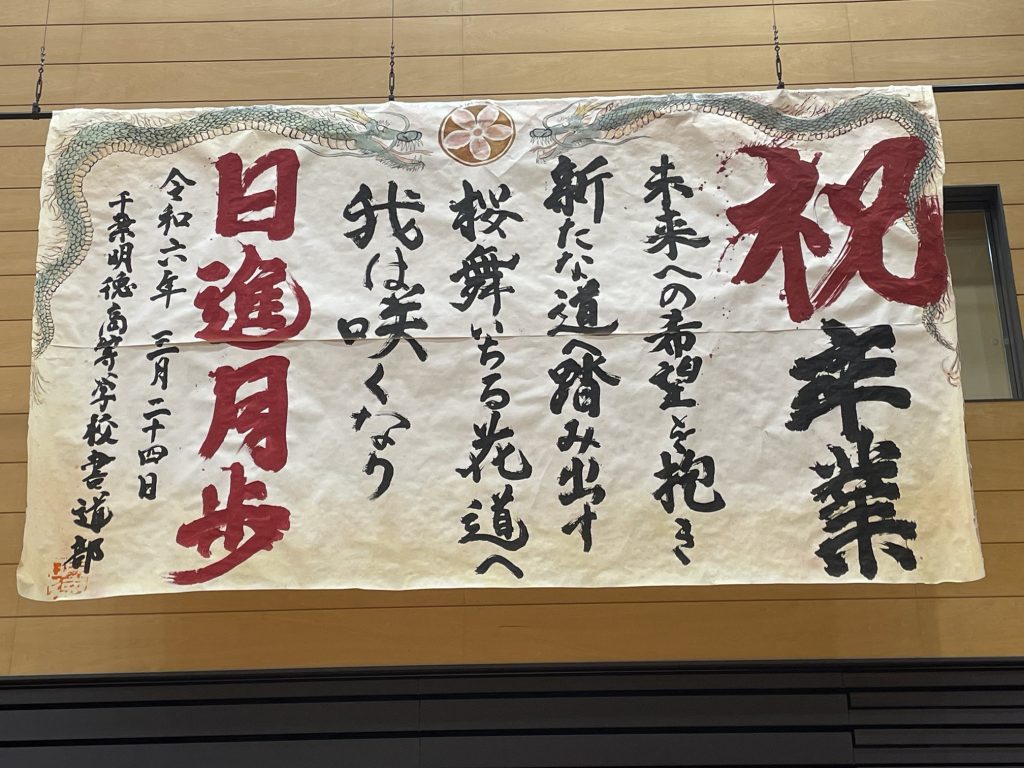 祝卒業
未来への希望を抱き
新たな道へ踏み出す
桜舞いちる花道へ
我は咲くなり
日進月歩
令和六年 三月二十四日
千葉明徳高等学校書道部